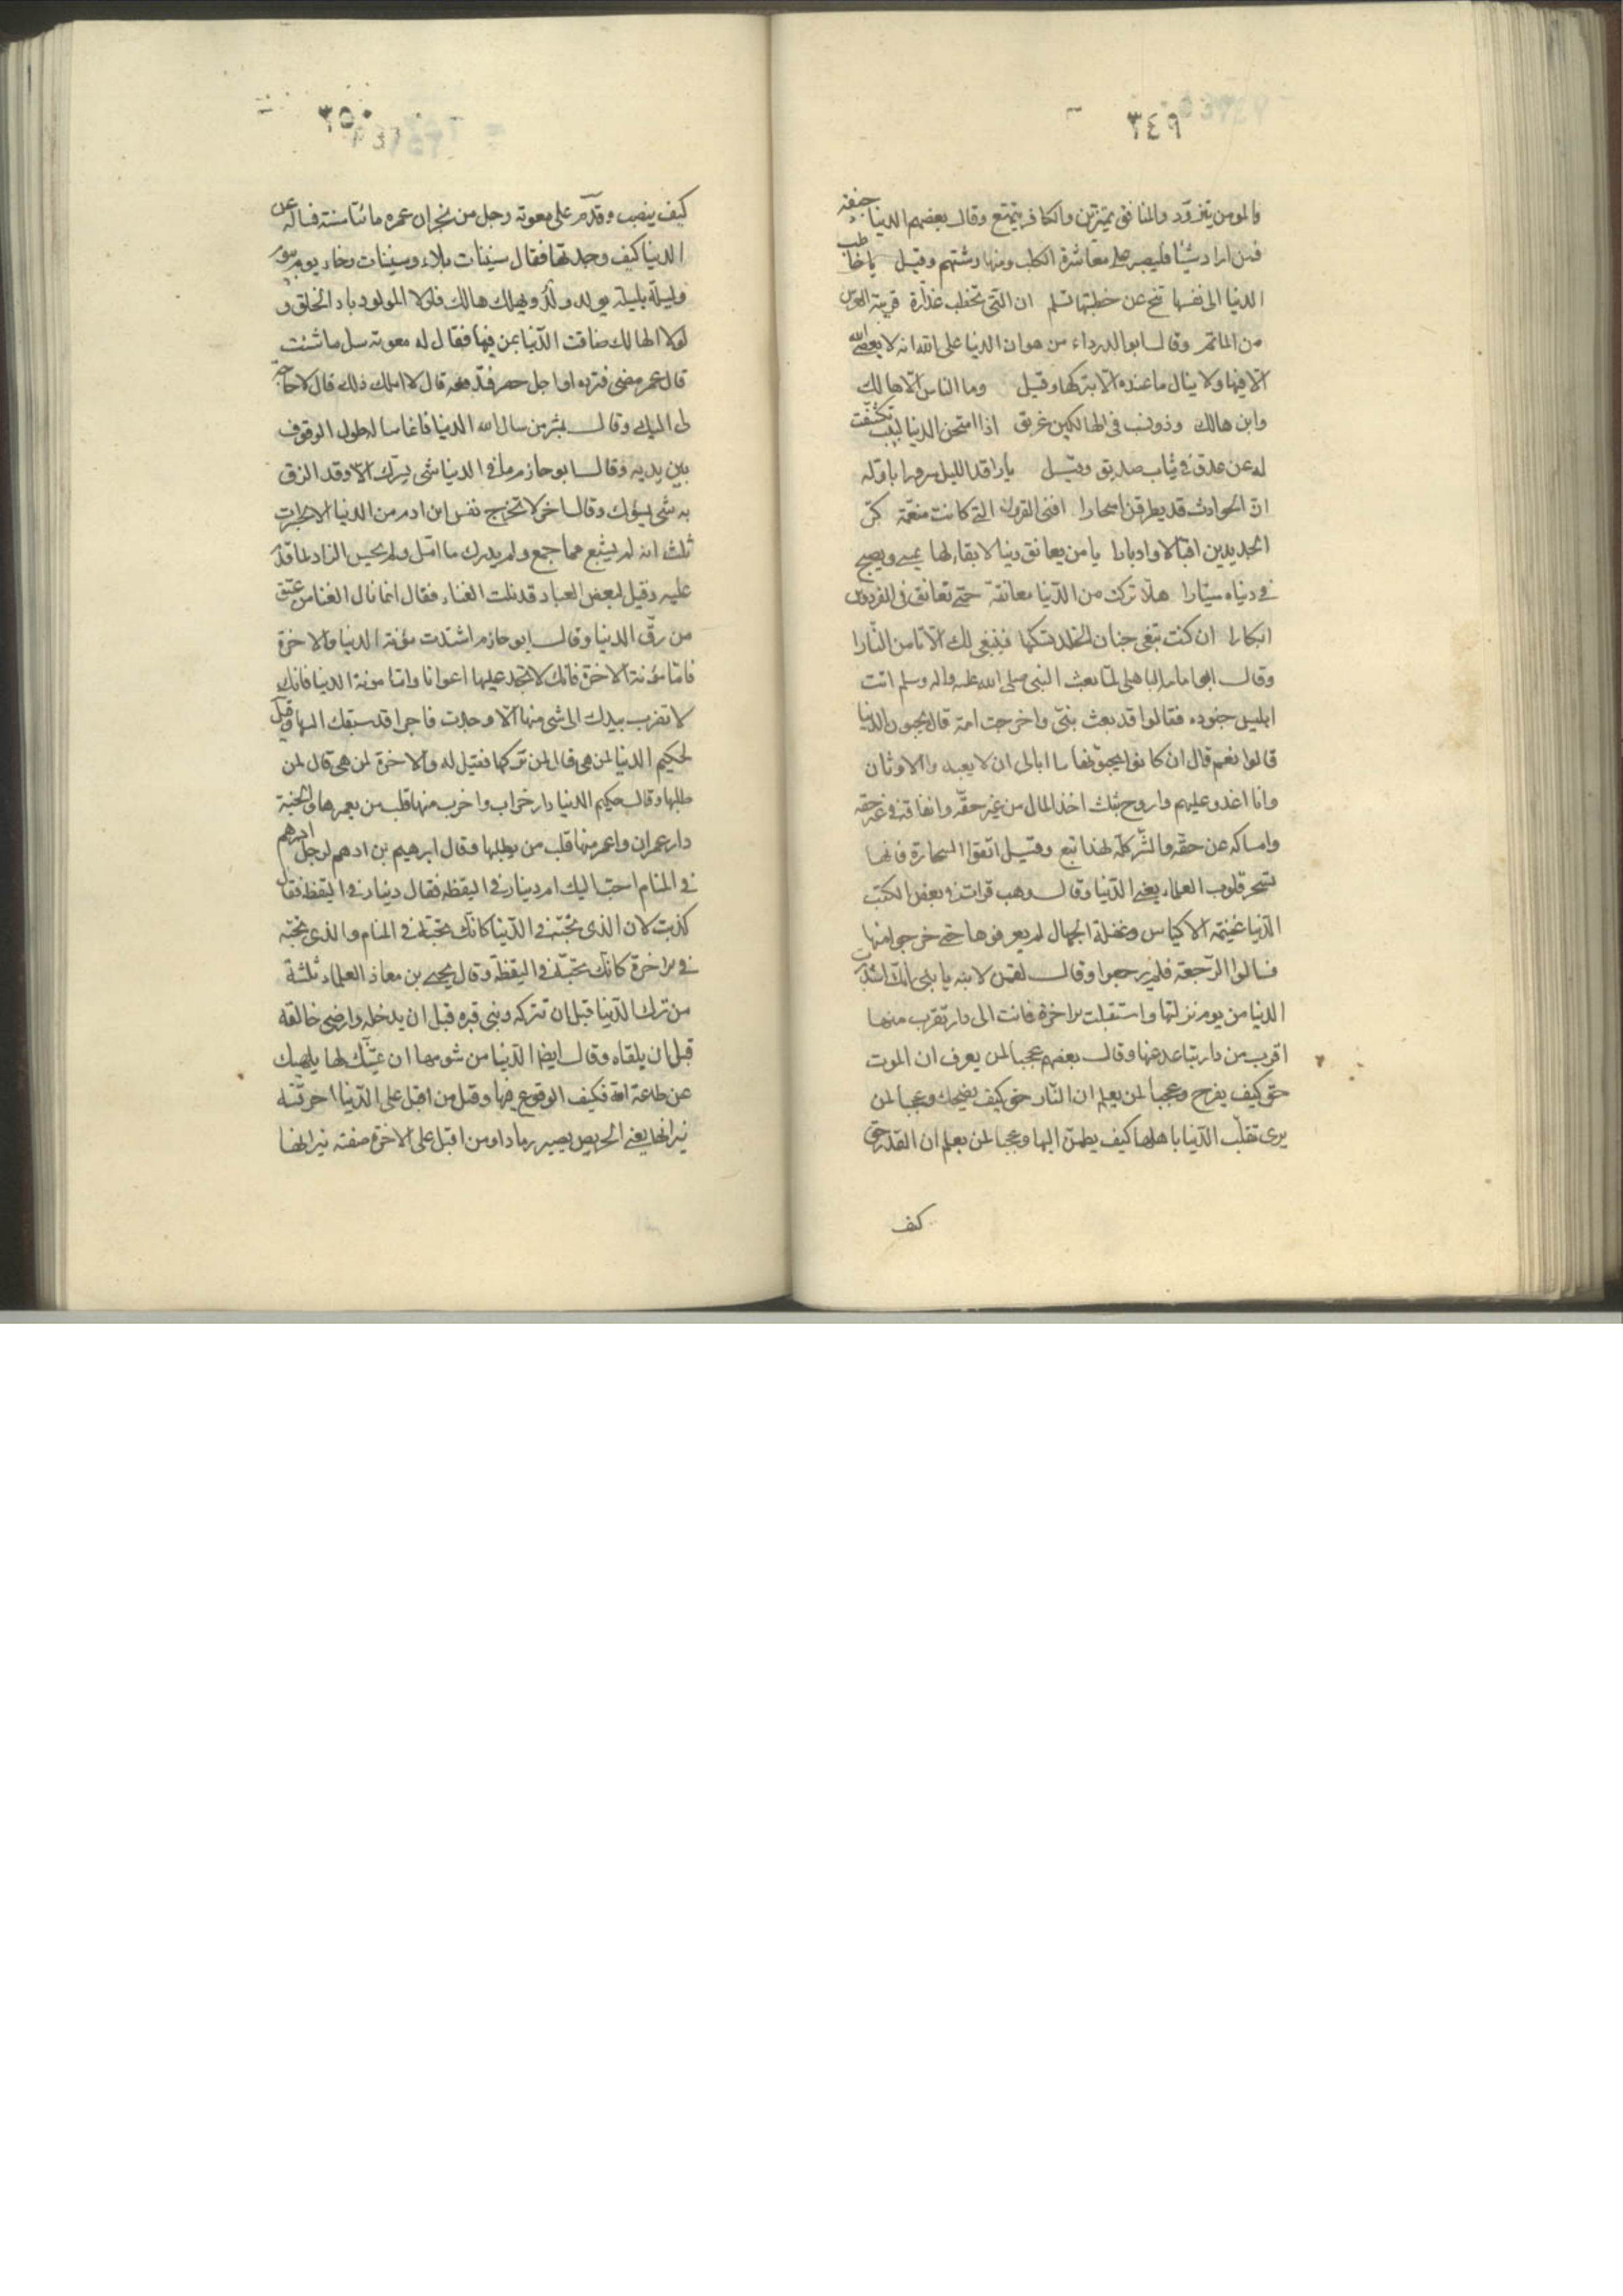 ٣٤٩
فالمومن يتزود والمنافق يتزين والكافر يتمتع وقال بعضهم الدنيا جيفة
فمن اراد شيئا فليصبر على معاشرة الكلب ومنها وشتهم وقيل يا خاطب
الدنيا الى نفسها تنح عن خطبتها تسلم ان التي تخطب غدارة قريبة العرس
من الماتم وقال ابو الدرداء من هوان الدنيا على الله انه لا يعصى الله
الا فيها ولا ينال ما عنده الا بتركها وقيل وما الناس الا هالك
وابن هالك وذو نسب في الهالكين غريق اذا امتحن الدنيا لبيب تكشفت
له عن عدو في ثياب صديق وقيل يا راقد الليل مسرورا باوله
ان الحوادث قد يطرقن اسحارا افنى القرون التي كانت منعمة كر
الجديدين اقبالا وادبارا يا من يعانق دنيا لا بقاء لها يمسي ويصبح
في دنياه سيارا هلا تركت من الدنيا معانقة حتى تعانق في الفردوس
ابكارا ان كنت تبغي جنان الخلد تسكنها فينبغي لك الا تامن النارا
وقال ابو امامه الباهلى لما بعث النبى صلى الله عليه واله وسلم اتت
ابليس جنوده فقالوا قد بعث بنى واخرجت امة قال يحبون الدنيا
قالوا نعم قال ان كانوا يحبونها ما ابالى ان لا يعبدوا الاوثان
وانا اغدو عليهم واروح بثلث اخذ المال من غير حقه وانفاقه في غير حقه
وامساكه عن حقه والشر كله لهذا تبع وقيل اتقوا السحارة فانها
تسحر قلوب العلماء يعنى الدنيا وقال وهب قرات في بعض الكتب
الدنيا غنيمة الاكياس وغفلة الجهال لم يعرفوها حتى خرجوا منها
فسالوا الرجعة فلم يرجعوا وقال لقمن لابنه يا بنى انك استدبرت
الدنيا من يوم نزلتها واستقبلت الاخرة فانت الى دار تقرب منها
اقرب من دار تباعد عنها وقال بعضهم عجبا لمن يعرف ان الموت
حق كيف يفرح وعجبا لمن يعلم ان النار حق كيف يضحك وعجبا لمن
يرى تقلب الدنيا باهلها كيف يطمئن اليها وعجبا لمن يعلم ان القدر حق
كيف
٣٥٠
كيف ينصب وقدم على معوية رجل من نجران عمره مائتا سنة فساله عن
الدنيا كيف وجدتها فقال سنيات بلاء وسنيات رخاء يوم بيوم
وليلة بليلة يولد ولد ويهلك هالك فلولا المولود باد الخلق و
لولا الهالك ضاقت الدنيا بمن فيها فقال له معوية سل ما شئت
قال عمر مضى فترده او اجل حضر فتدفعه قال لا املك ذلك قال لا حاجة
لى اليك وقال بشر من سال الله الدنيا فانما ساله طول الوقوف
بين يديه وقال ابو حازم ما في الدنيا شى يسرك الا وقد الزق
به شى يسؤك وقال اخر لا تخرج نفس ابن ادم من الدنيا الا بحسرات
ثلث انه لم يشبع مما جمع ولم يدرك ما امل ولم يحسن الزاد لما قدم
عليه وقيل لبعض العباد قد نلت الغناء فقال انما نال الغنا من عتق
من رق الدنيا وقال ابو حازم اشتدت مؤنة الدنيا والاخرة
فاما مؤنة الاخرة فانك لا تجد عليها اعوانا واما مونة الدنيا فانك
لا تضرب بيدك الى شى منها الا وجدت فاجرا قد سبقك اليها وقيل
لحكيم الدنيا لمن هى قال لمن تركها فقيل له والاخرة لمن هى قال لمن
طلبها وقال حكيم الدنيا دار خراب واخرب منها قلب من يعمرها والجنة
دار عمران واعمر منها قلب من يطلبها وقال ابرهيم بن ادهم لرجل ادرهم
في المنام احب اليك ام دينار في اليقظه فقال دينار في اليقظة فقال
كذبت لان الذى تحبه في الدنيا كانك تحبه في المنام والذى تحبه
في الاخرة كانك تحبه في اليقظة وقال يحيى بن معاذ العلماء ثلثة
من ترك الدنيا قبل ان تتركه وبنى قبره قبل ان يدخله وارضى خالقه
قبل ان يلقاه وقال ايضا الدنيا من شومها ان تمنيك لها يلهيك
عن طاعة الله فكيف الوقوع فيها وقيل من اقبل على الدنيا احرقته
نيرانها يعنى الحريص يصير رمادا ومن اقبل على الاخرة صفته نيرانها